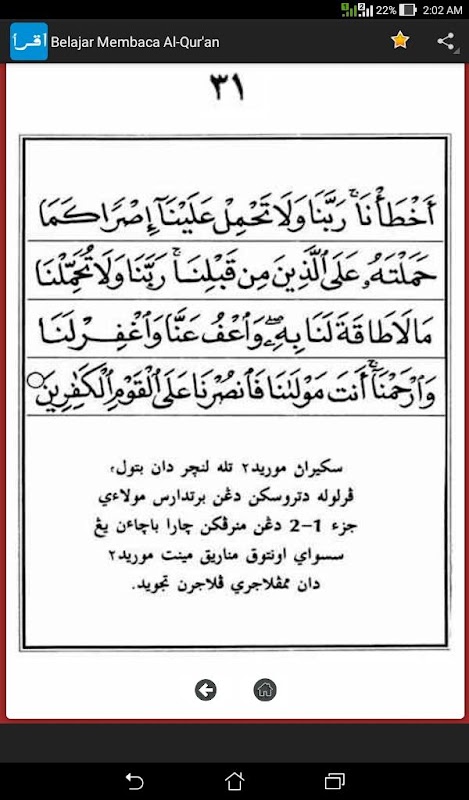 22% 2:02 AM
اقرأ Belajar Membaca Al-Qur'an
٣١
أَخْطَأْنَا ۚ رَبَّنَا وَلَا تَحْمِلْ عَلَيْنَآ إِصْرًا كَمَا
حَمَلْتَهُۥ عَلَى ٱلَّذِينَ مِن قَبْلِنَا ۚ رَبَّنَا وَلَا تُحَمِّلْنَا
مَا لَا طَاقَةَ لَنَا بِهِۦ ۖ وَٱعْفُ عَنَّا وَٱغْفِرْ لَنَا
وَٱرْحَمْنَآ ۚ أَنتَ مَوْلَىٰنَا فَٱنصُرْنَا عَلَى ٱلْقَوْمِ ٱلْكَٰفِرِينَ
سكيران موريد٢ تله لنچر دان بتول،
ڤرلوله دتروسكن دڠن برتدارس مولاءي
جزء 1–2 دڠن منرڤكن چارا باچاءن يڠ
سسواي اونتوق مناريق مينت موريد٢
دان ممڤلاجري ڤلاجرن تجويد.